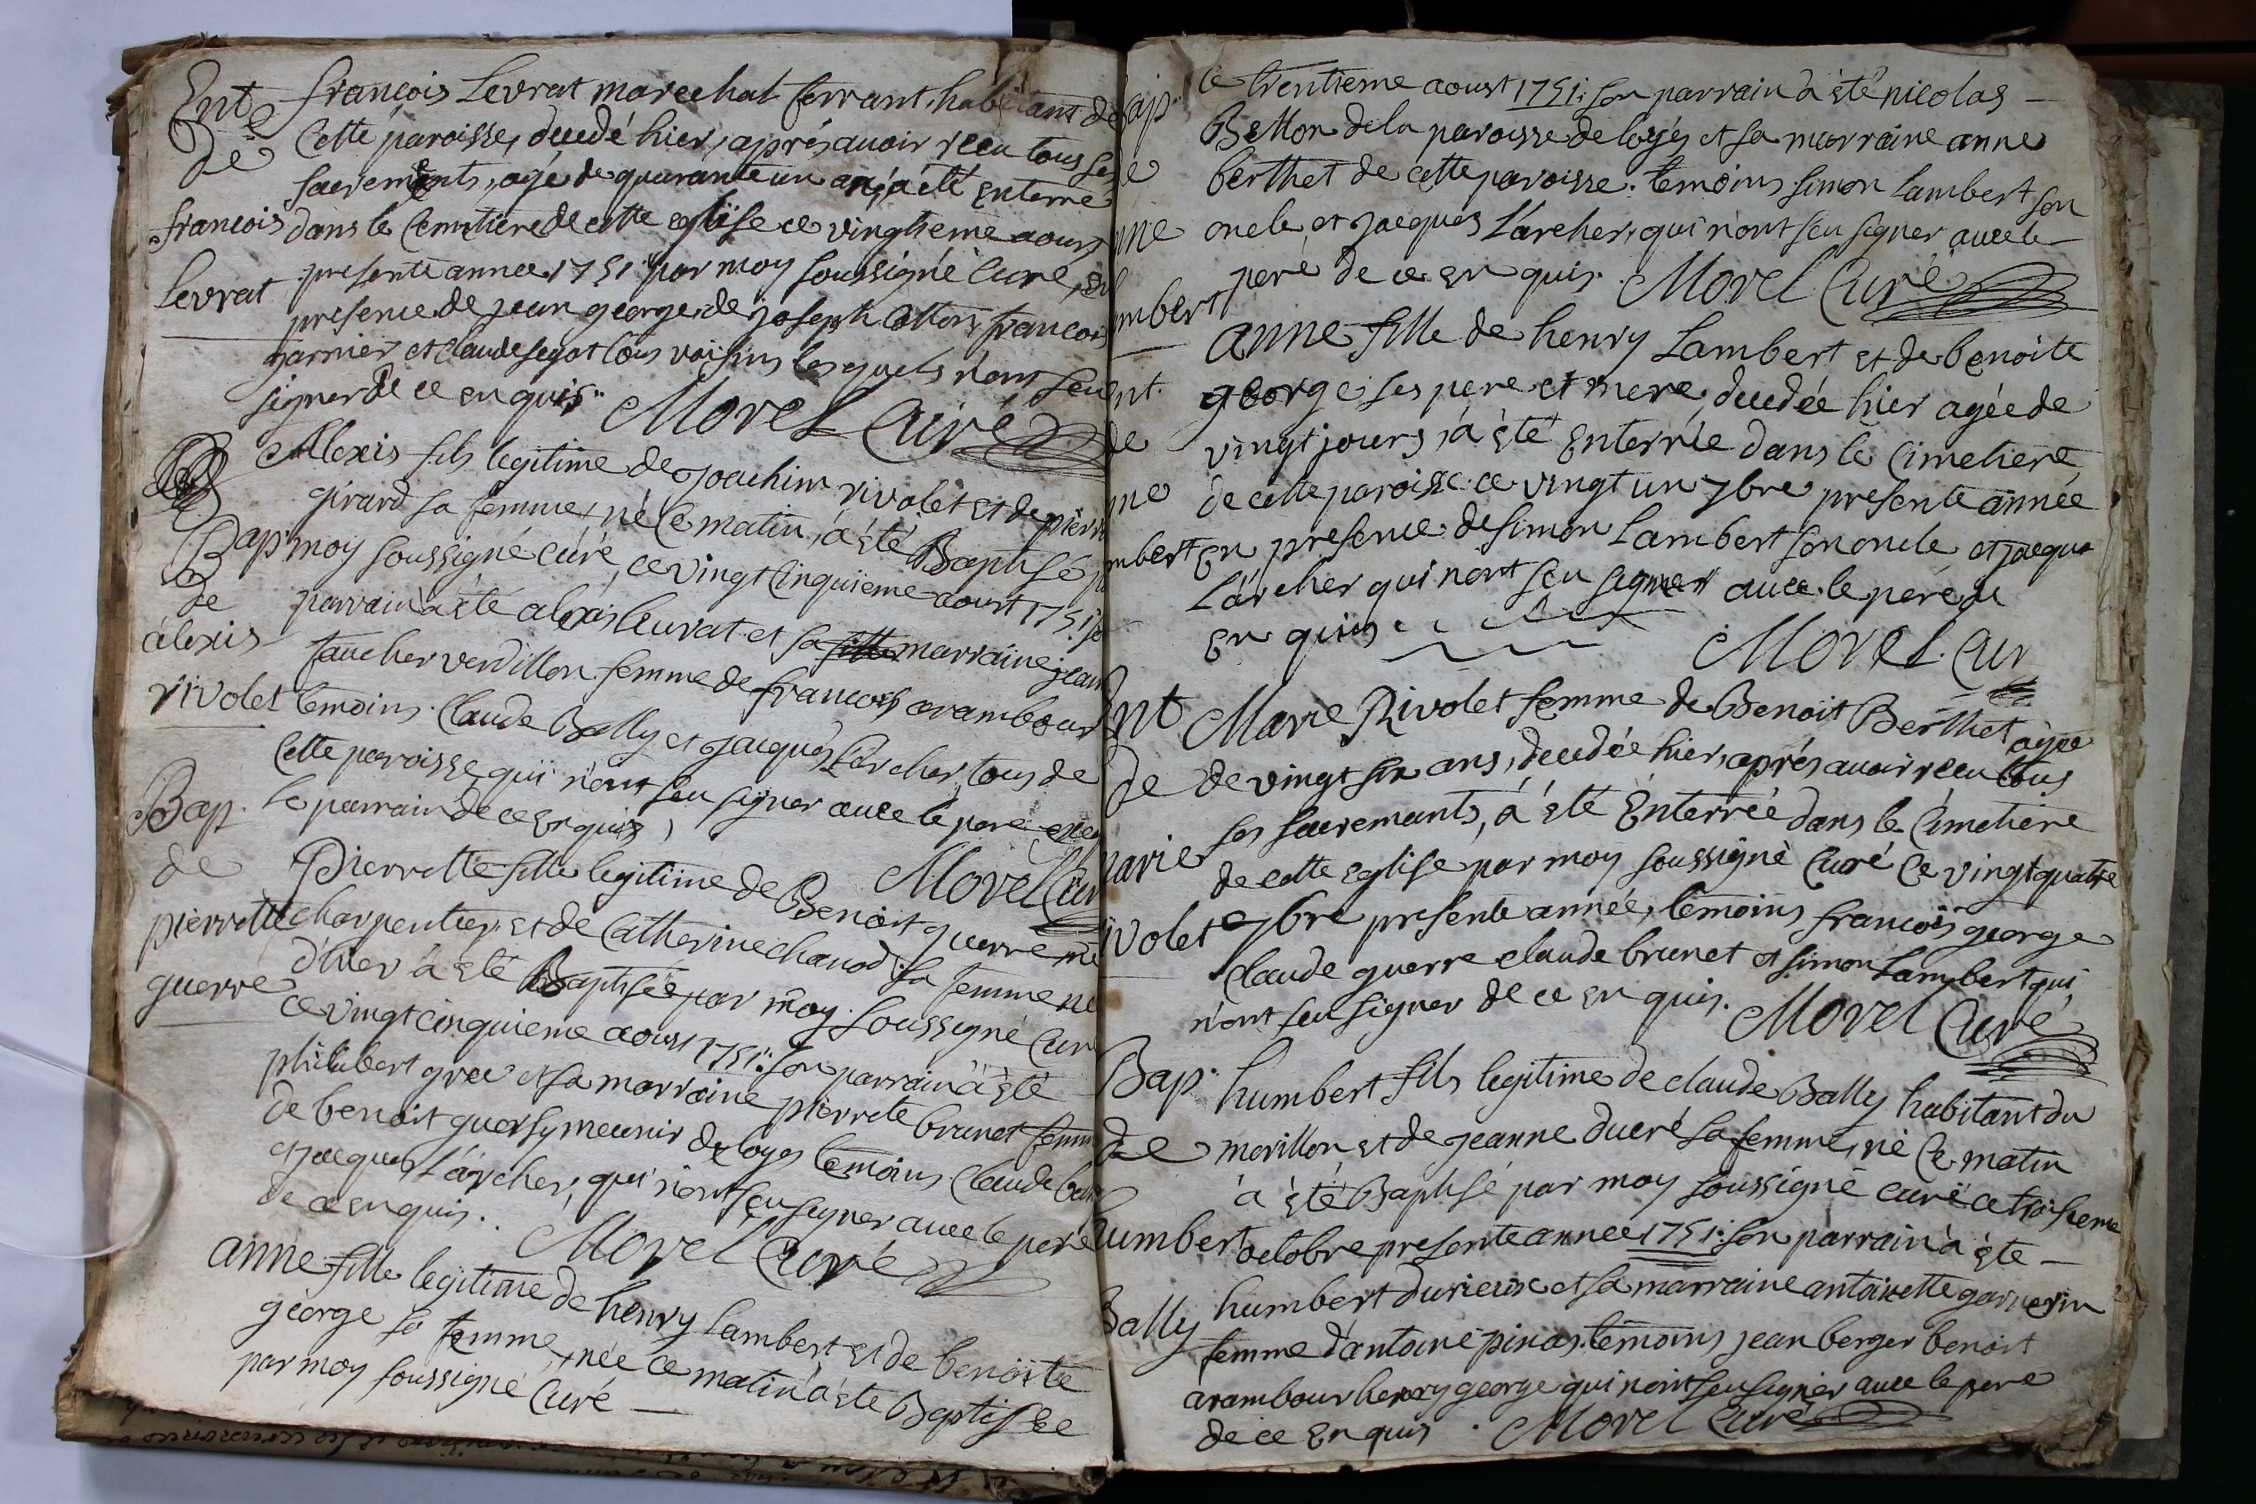 Ent.
de
françois
Levrat
françois Levrat marechal ferrant, habitant de
Cette paroisse, decedé hier, aprés auoir receu tous ses
sacrements, agé de quarante un an, a été enterré
dans le Cemetiere de cette eglise ce vingtieme aoust
presente annee 1751 par moy soussigné Curé, en
presence de jean george, de joseph Cotton, francois
garnier et claude segot tous voisins lesquels n'ont seu
signer de ce enquis. Morel Curé
Bap
de
alexis
rivolet
Alexis fils legitime de Joachim rivolet et de pierr
girard sa femme, né ce matin, a été Baptisé p
moy soussigné curé, ce vingt cinquieme aoust 1751 so
parrain a été alexis leurat et sa marraine jean
faucher verdillon femme de francois arambour
temoins Claude Bally et Jacques L'archer, tous de
Cette paroisse qui n'ont seu signer auec le pere et
le parrain de ce enquis,
Morel Cur
Bap.
de
pierrette
guerre
Pierrette fille legitime de Benoit guerre me
charpentier et de Catherine chanod sa femme ne
d'hier a été Baptisée par moy soussigné Cur
ce vingt cinquieme aoust 1751: son parrain a été
philibert gree et sa marraine pierrete brunet femm
de benoit guersy meunir de loyes temoins Claude
et jacques L'archer, qui n'ont seu signer auec le pere
de ce enquis. Morel Curé
anne fille legitime de henry Lambert et de benoite
george sa femme, née ce matin a été Baptisée
par moy soussigné Curé
ap.
e
nne
mbert
ce trentieme aoust 1751: son parrain a été nicolas
Betton de la paroisse de loyes et sa marraine anne
berthet de cette paroisse. temoins simon Lambert son
oncle et Jacques L'archer, qui n'ont seu signer auec le
pere de ce enquis. Morel Curé
nt.
de
ne
mbert
anne fille de henry Lambert et de benoite
george ses pere et mere, decedée hier agée de
vingt jours, a été Enterrée dans le Cimetiere
de cette paroisse ce vingt un 7bre presente année
En presence de simon Lambert son oncle et jacque
L'archer qui n'ont seu signer auec le pere de
Enquis
Morel. Cur
Ent
de
marie
rivolet
Marie Rivolet femme de Benoit Berthet agée
de vingt six ans, decedée hier, aprés auoir receu tous
ses sacremants, a été Enterrée dans le Cimetiere
de cette Eglise par moy soussigné Curé ce vingt quatre
7bre presente année, temoins françois george
Claude guerre claude brunet et simon Lambert qui
n'ont seu signer de ce enquis. Morel Curé
Bap.
de
humbert
Bally
humbert fils legitime de claude Bally habitant du
morillon et de jeanne ducré sa femme, né Ce matin
a été Baptisé par moy soussigné curé ce troisieme
octobre presente annee 1751: son parrain a été
humbert durieux et sa marraine antoinette garnerin
femme d'antoine pinas. temoins jean berger benoit
arambour henry george qui n'ont seu signer auec le pere
de ce enquis. Morel Curé